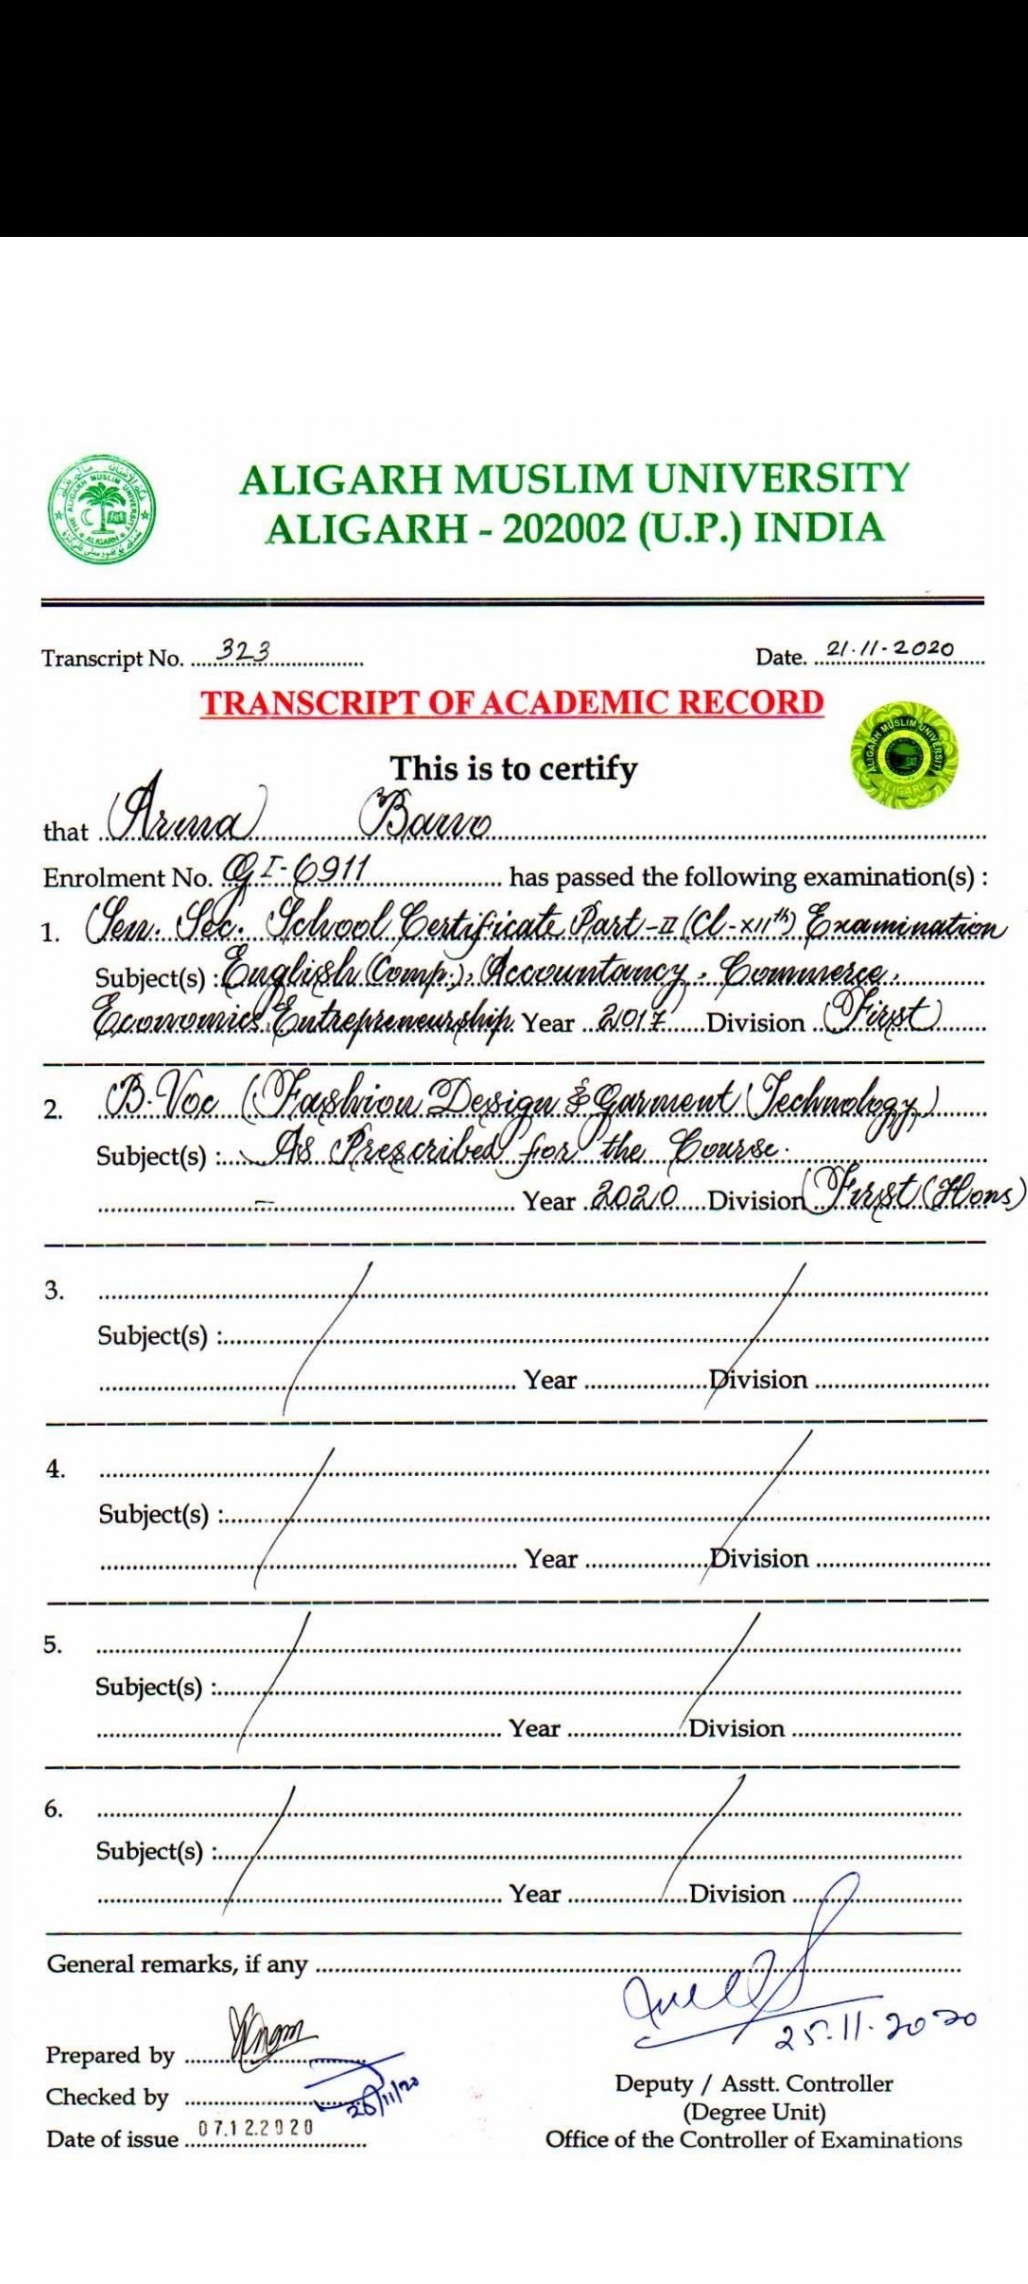 ALIGARH MUSLIM UNIVERSITY
ALIGARH - 202002 (U.P.) INDIA
Transcript No. 323 Date. 21.11-2020
TRANSCRIPT OF ACADEMIC RECORD
This is to certify
that Aruna Bano
Enrolment No. GI-6911 has passed the following examination(s) :
1. Sen. Sec. School Certificate Part-II (Cl-XIIth) Examination
Subject(s) : English (Comp.), Accountancy, Commerce,
Economics, Entrepreneurship Year 2017 Division First
2. B.Voc (Fashion Design & Garment Technology)
Subject(s) : As Prescribed for the Course.
– Year 2020 Division First (Hons)
3.
Subject(s) :
Year Division
4.
Subject(s) :
Year Division
5.
Subject(s) :
Year Division
6.
Subject(s) :
Year Division
General remarks, if any
25.11.2020
Prepared by
Checked by
Date of issue 07.12.2020
Deputy / Asstt. Controller
(Degree Unit)
Office of the Controller of Examinations